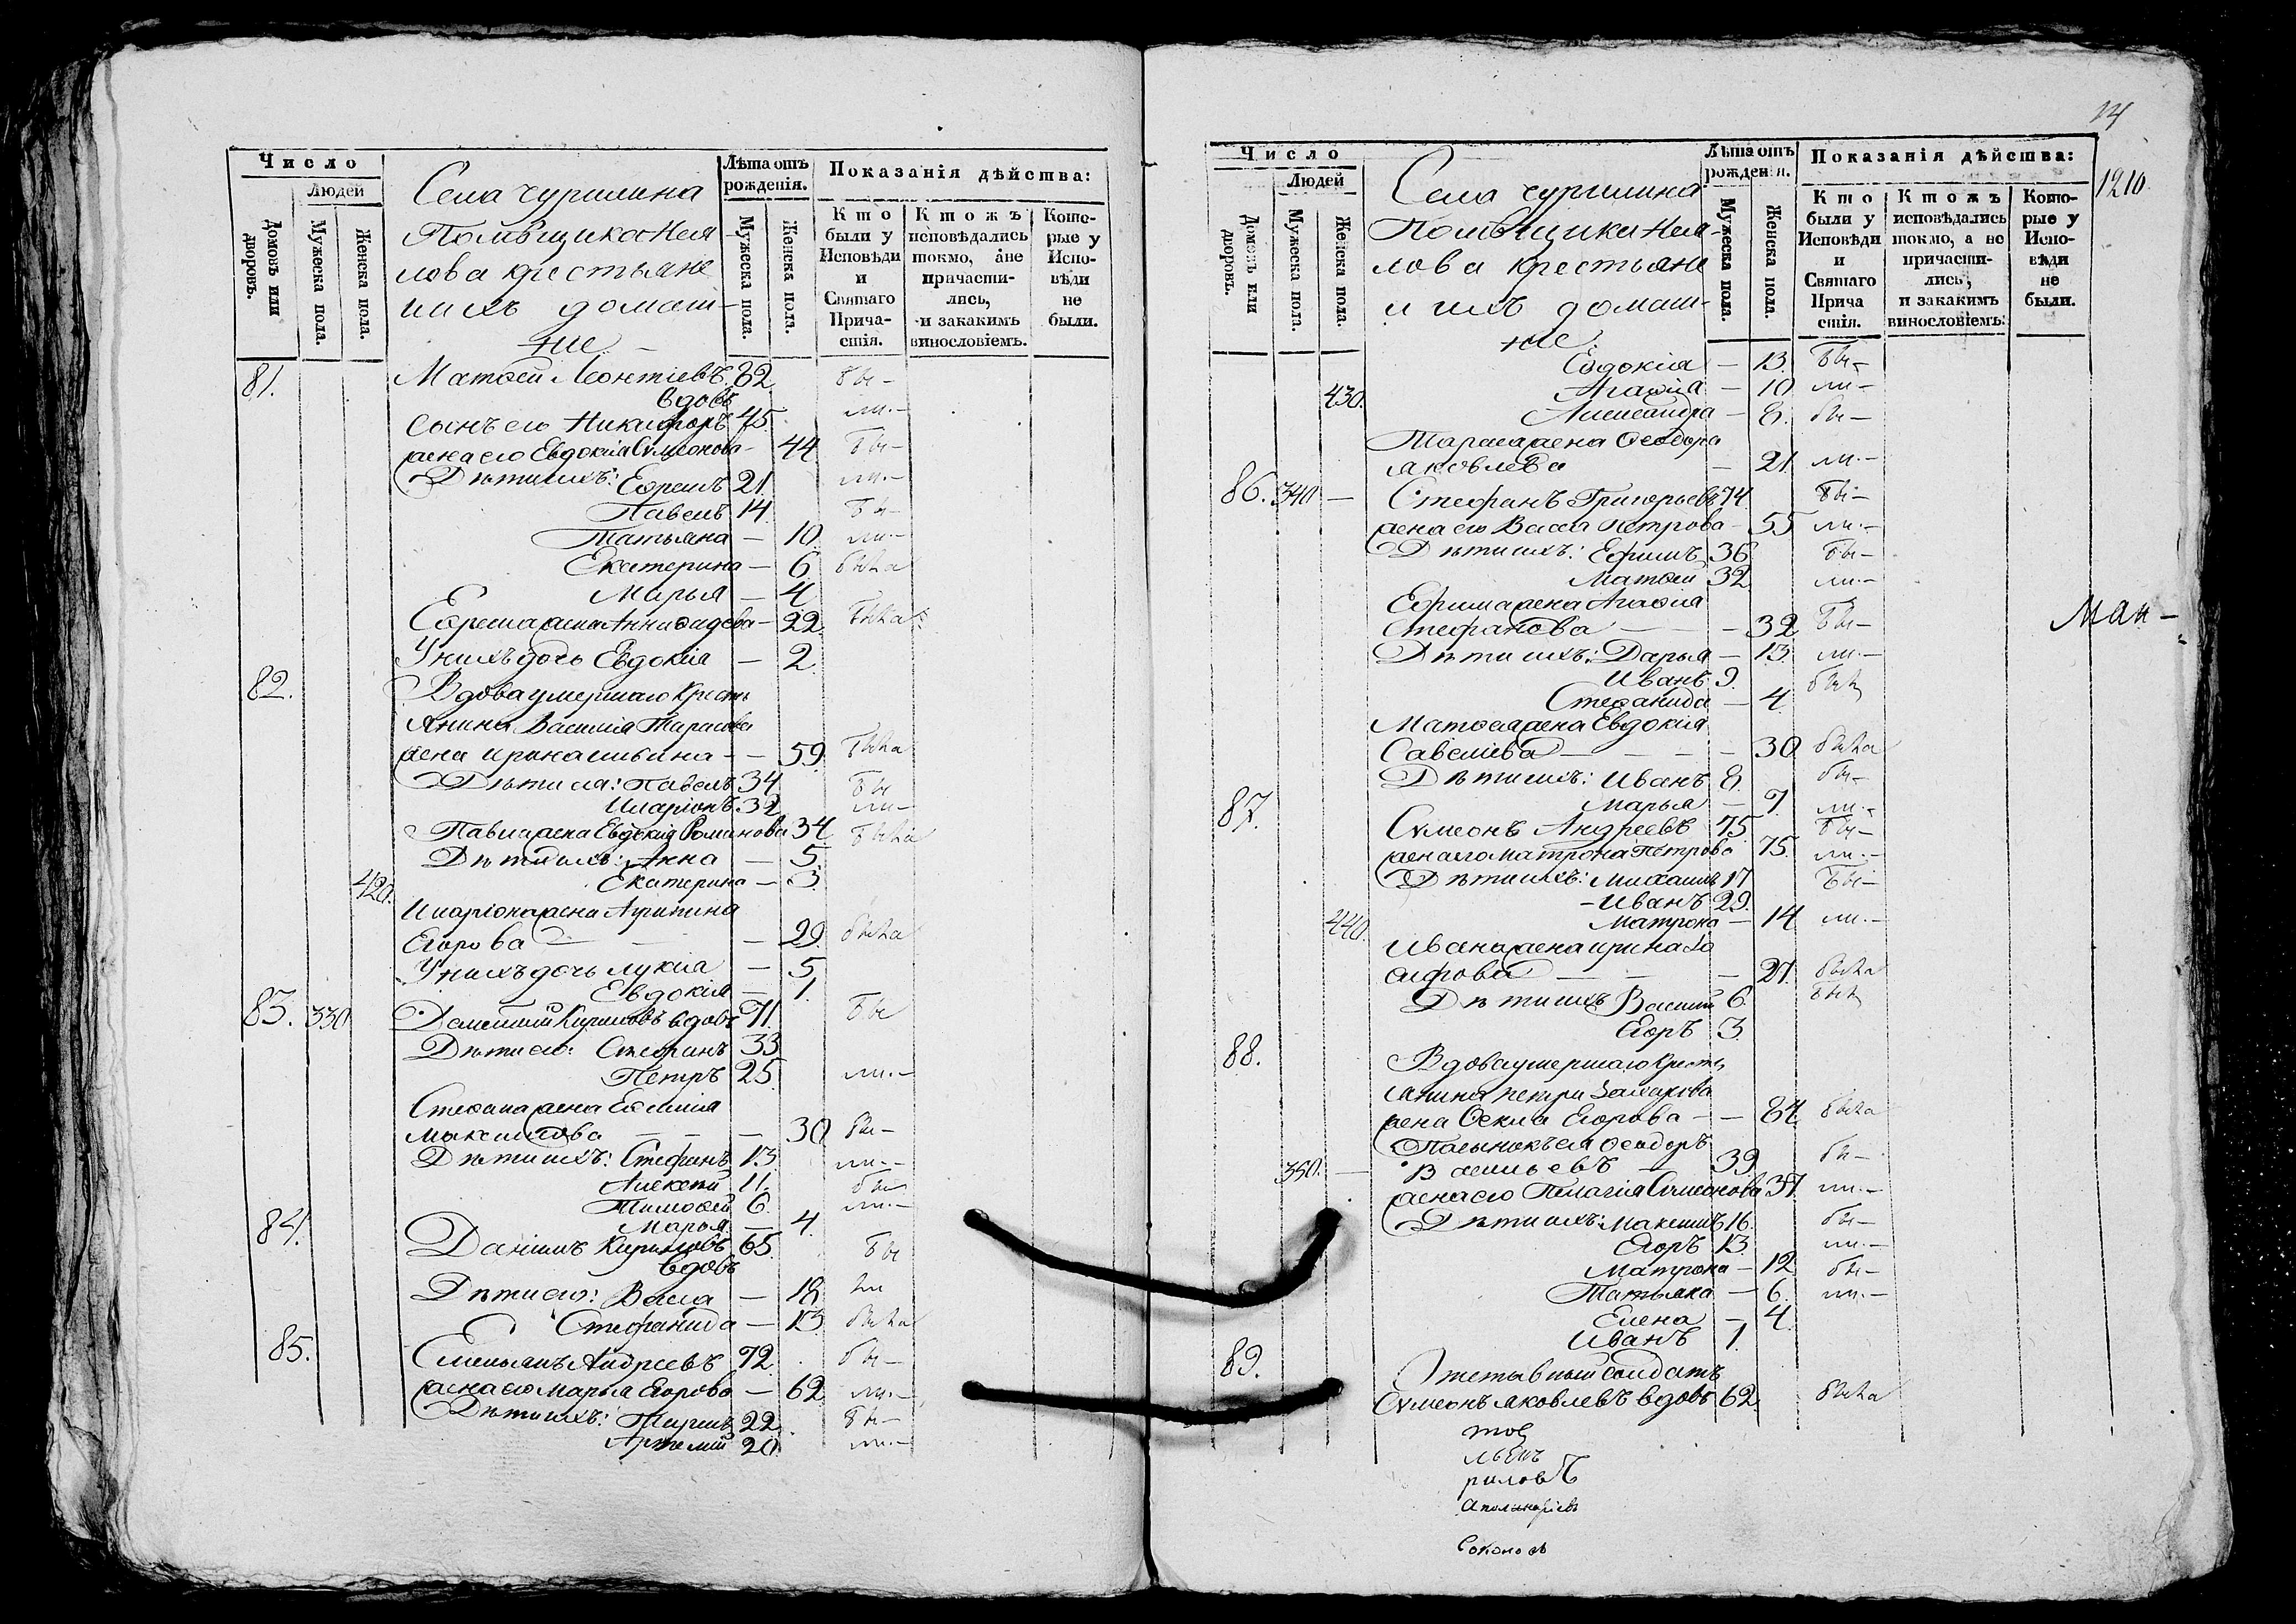 Число
Людей
Домовъ или дворовъ.
Мужеска пола.
Женска пола.
Села Чурилина
Помѣщика Нея-
лова крестьяне
и ихъ домаш-
ніе
Лѣта отъ рожденія.
Мужеска пола.
Женска пола.
Показанія дѣйства:
Кто были у Исповѣди и Святаго Прича-стія.
Ктожъ исповѣдались токмо, а не причасти-лись, и закакимъ винословіемъ.
Кото-рые у Испо-вѣди не были.
81. Матѳей Леонтіевъ 62 бы-
вдовъ
Сынъ его Никифоръ 45 ли.-
жена его Евдокія Симеонова - 44 бы-
Дѣти ихъ: Ефремъ 21 ли.-
Павелъ 14 бы-
Татьяна - 10 ли.-
Екатерина - 6 была
Марья - 4
Ефрема жена Анна - 22 была
У нихъ дочь Евдокія - 2
82. Вдова умершаго кресть
янина Василія Тарасова
жена Ирина - - 59 была
Дѣти ея: Павелъ 34 бы
Иларіонъ 32 ли-
Павла жена Евдокія Романова 34 была
Дѣти ихъ: Анна - 5
420. Екатерина - 3
Иларіона жена Агрипина
Егорова - - 29 была
У нихъ дочь Лукія - 5
Евдокія - 1.
83. 330 Дементій Кириловъ вдовъ 71. бы
Дѣти его: Стефанъ 33
Петръ 25 ли.-
Стефана жена Евфимія
Максимова - - - 30 бы-
Дѣти ихъ: Стефанъ 13 ли.-
Алексѣй 11. бы
Тимофей 6. ли.-
Марья - 4.
84. Даніилъ Кириловъ 65. бы
вдовъ
Дѣти его: Васса - 18 ли
Стефанида - 13 была
85. Емельянъ Андреевъ 72 бы-
жена его Марья Егорова - 62 ли.-
Дѣти ихъ: Тарасъ 22 бы-
Артемій 20. ли.-
14
Число
Людей
Домовъ или дворовъ.
Мужеска пола.
Женска пола.
Села Чурилина
Помѣщика Нея-
лова крестьяне
и ихъ домаш-
ніе
Лѣта отъ рожденія.
Мужеска пола.
Женска пола.
Показанія дѣйства:
Кто были у Исповѣди и Святаго Прича стія.
Ктожъ исповѣдались токмо, а не причасти-лись, и закакимъ винословіемъ.
Кото-рые у Испо-вѣди не были.
1210.
Евдокія - 13. бы-
430. Агафія - 10 ли-
Александра - 8. бы-
Тараса жена Ѳеодора
Яковлева - 21 ли.-
86. 340 - Стефанъ Григорьевъ 74 бы-
жена его Васса Петрова - 55 ли.-
Дѣти ихъ: Ефимъ 36 бы-
Матѳей 32 ли.-
Ефима жена Агафія
Стефанова - - 32 бы-
Ман-
Дѣти ихъ: Дарья - 13. ли.-
Иванъ 9. былъ
Стефанида - 4
Матѳея жена Евдокія
Савельева - - - 30 была
Дѣти ихъ: Иванъ 8. бы-
Марья - 7 ли.-
87. Симеонъ Андреевъ 75 бы-
жена его Матрона Петрова 75. ли.-
Дѣти ихъ: Михаилъ 17 бы-
- Иванъ 29.
440. Матрона - 14 ли.-
Ивана жена Ирина Іо
сифова - - - 27. была
Дѣти ихъ Василій 6. былъ
Егоръ 3.
88. Вдова умершаго кресть
янина Петра Захарова
жена Ѳекла Егорова - - 64. была
Пасынокъ ея Ѳеодоръ
350. - Васильевъ - 39. бы-
жена его Пелагія Симеонова 37. ли.-
Дѣти ихъ: Максимъ 16. бы-
Егоръ 13. ли.-
Матрона - 12 бы-
Татьяна - 6. ли.-
Елена - 4.
Иванъ 1.
89. Отставный солдатъ
Симеонъ Яковлевъ вдовъ 62. была
риловъ
Аполинаріевъ